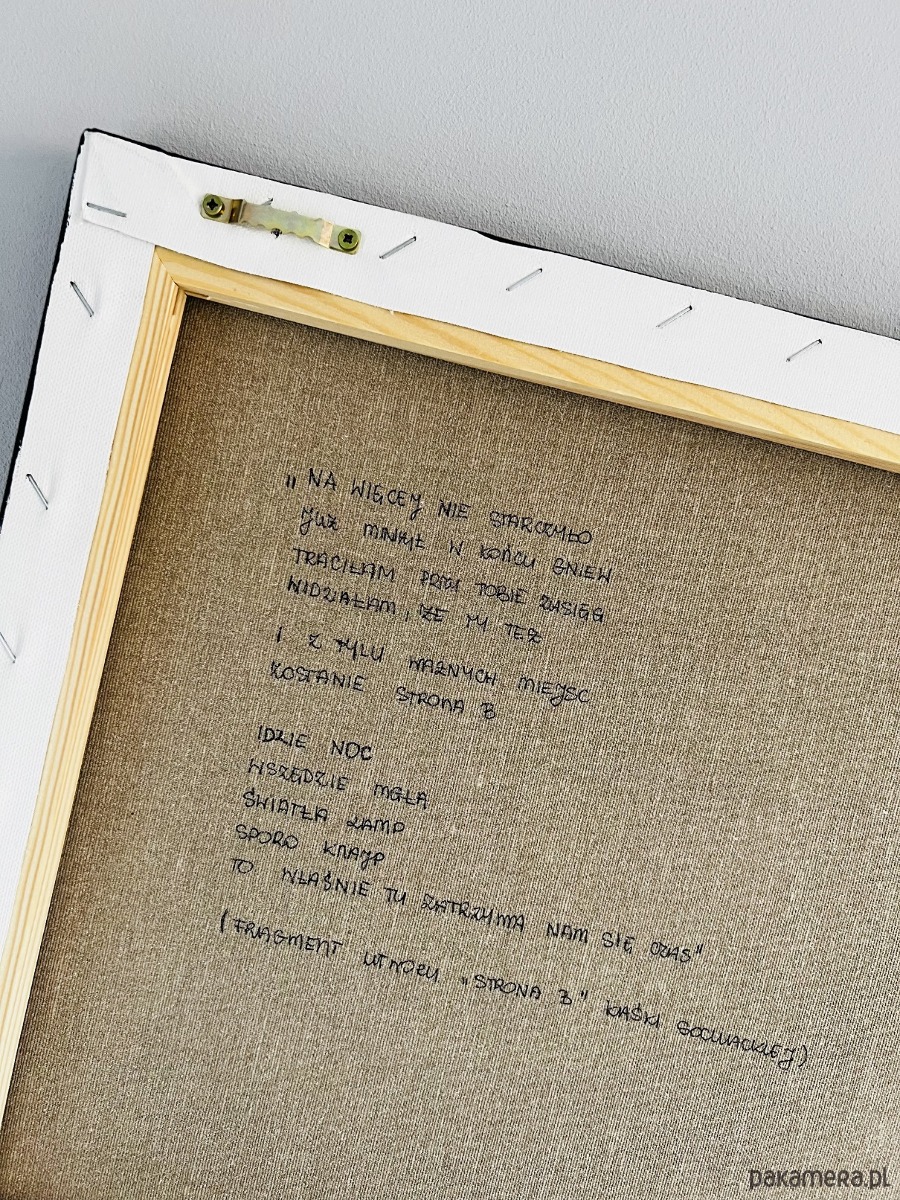 „NA WIĘCEJ NIE STARCZYŁO
JUŻ MINĄŁ W KOŃCU GNIEW
TRACIŁAM PRZY TOBIE ZASIĘG
WIDZIAŁAM, ŻE TY TEŻ
I Z TYLU WAŻNYCH MIEJSC
ZOSTANIE STRONA B
IDZIE NOC
WSZĘDZIE MGŁA
ŚWIATŁA LAMP
SPORO KNAJP
TO WŁAŚNIE TU ZATRZYMA NAM SIĘ CZAS"
(FRAGMENT UTWORU „STRONA B" KAŚKI SOCHACKIEJ)
pakamera.pl